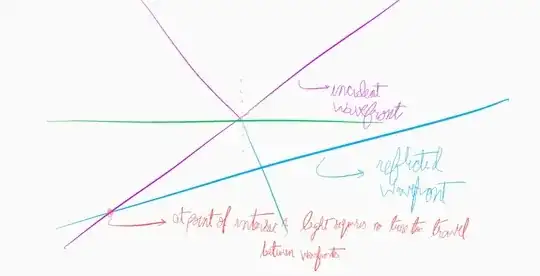 incident
wavefront
reflected
wavefront
at point of light requires no travel
between wavefronts